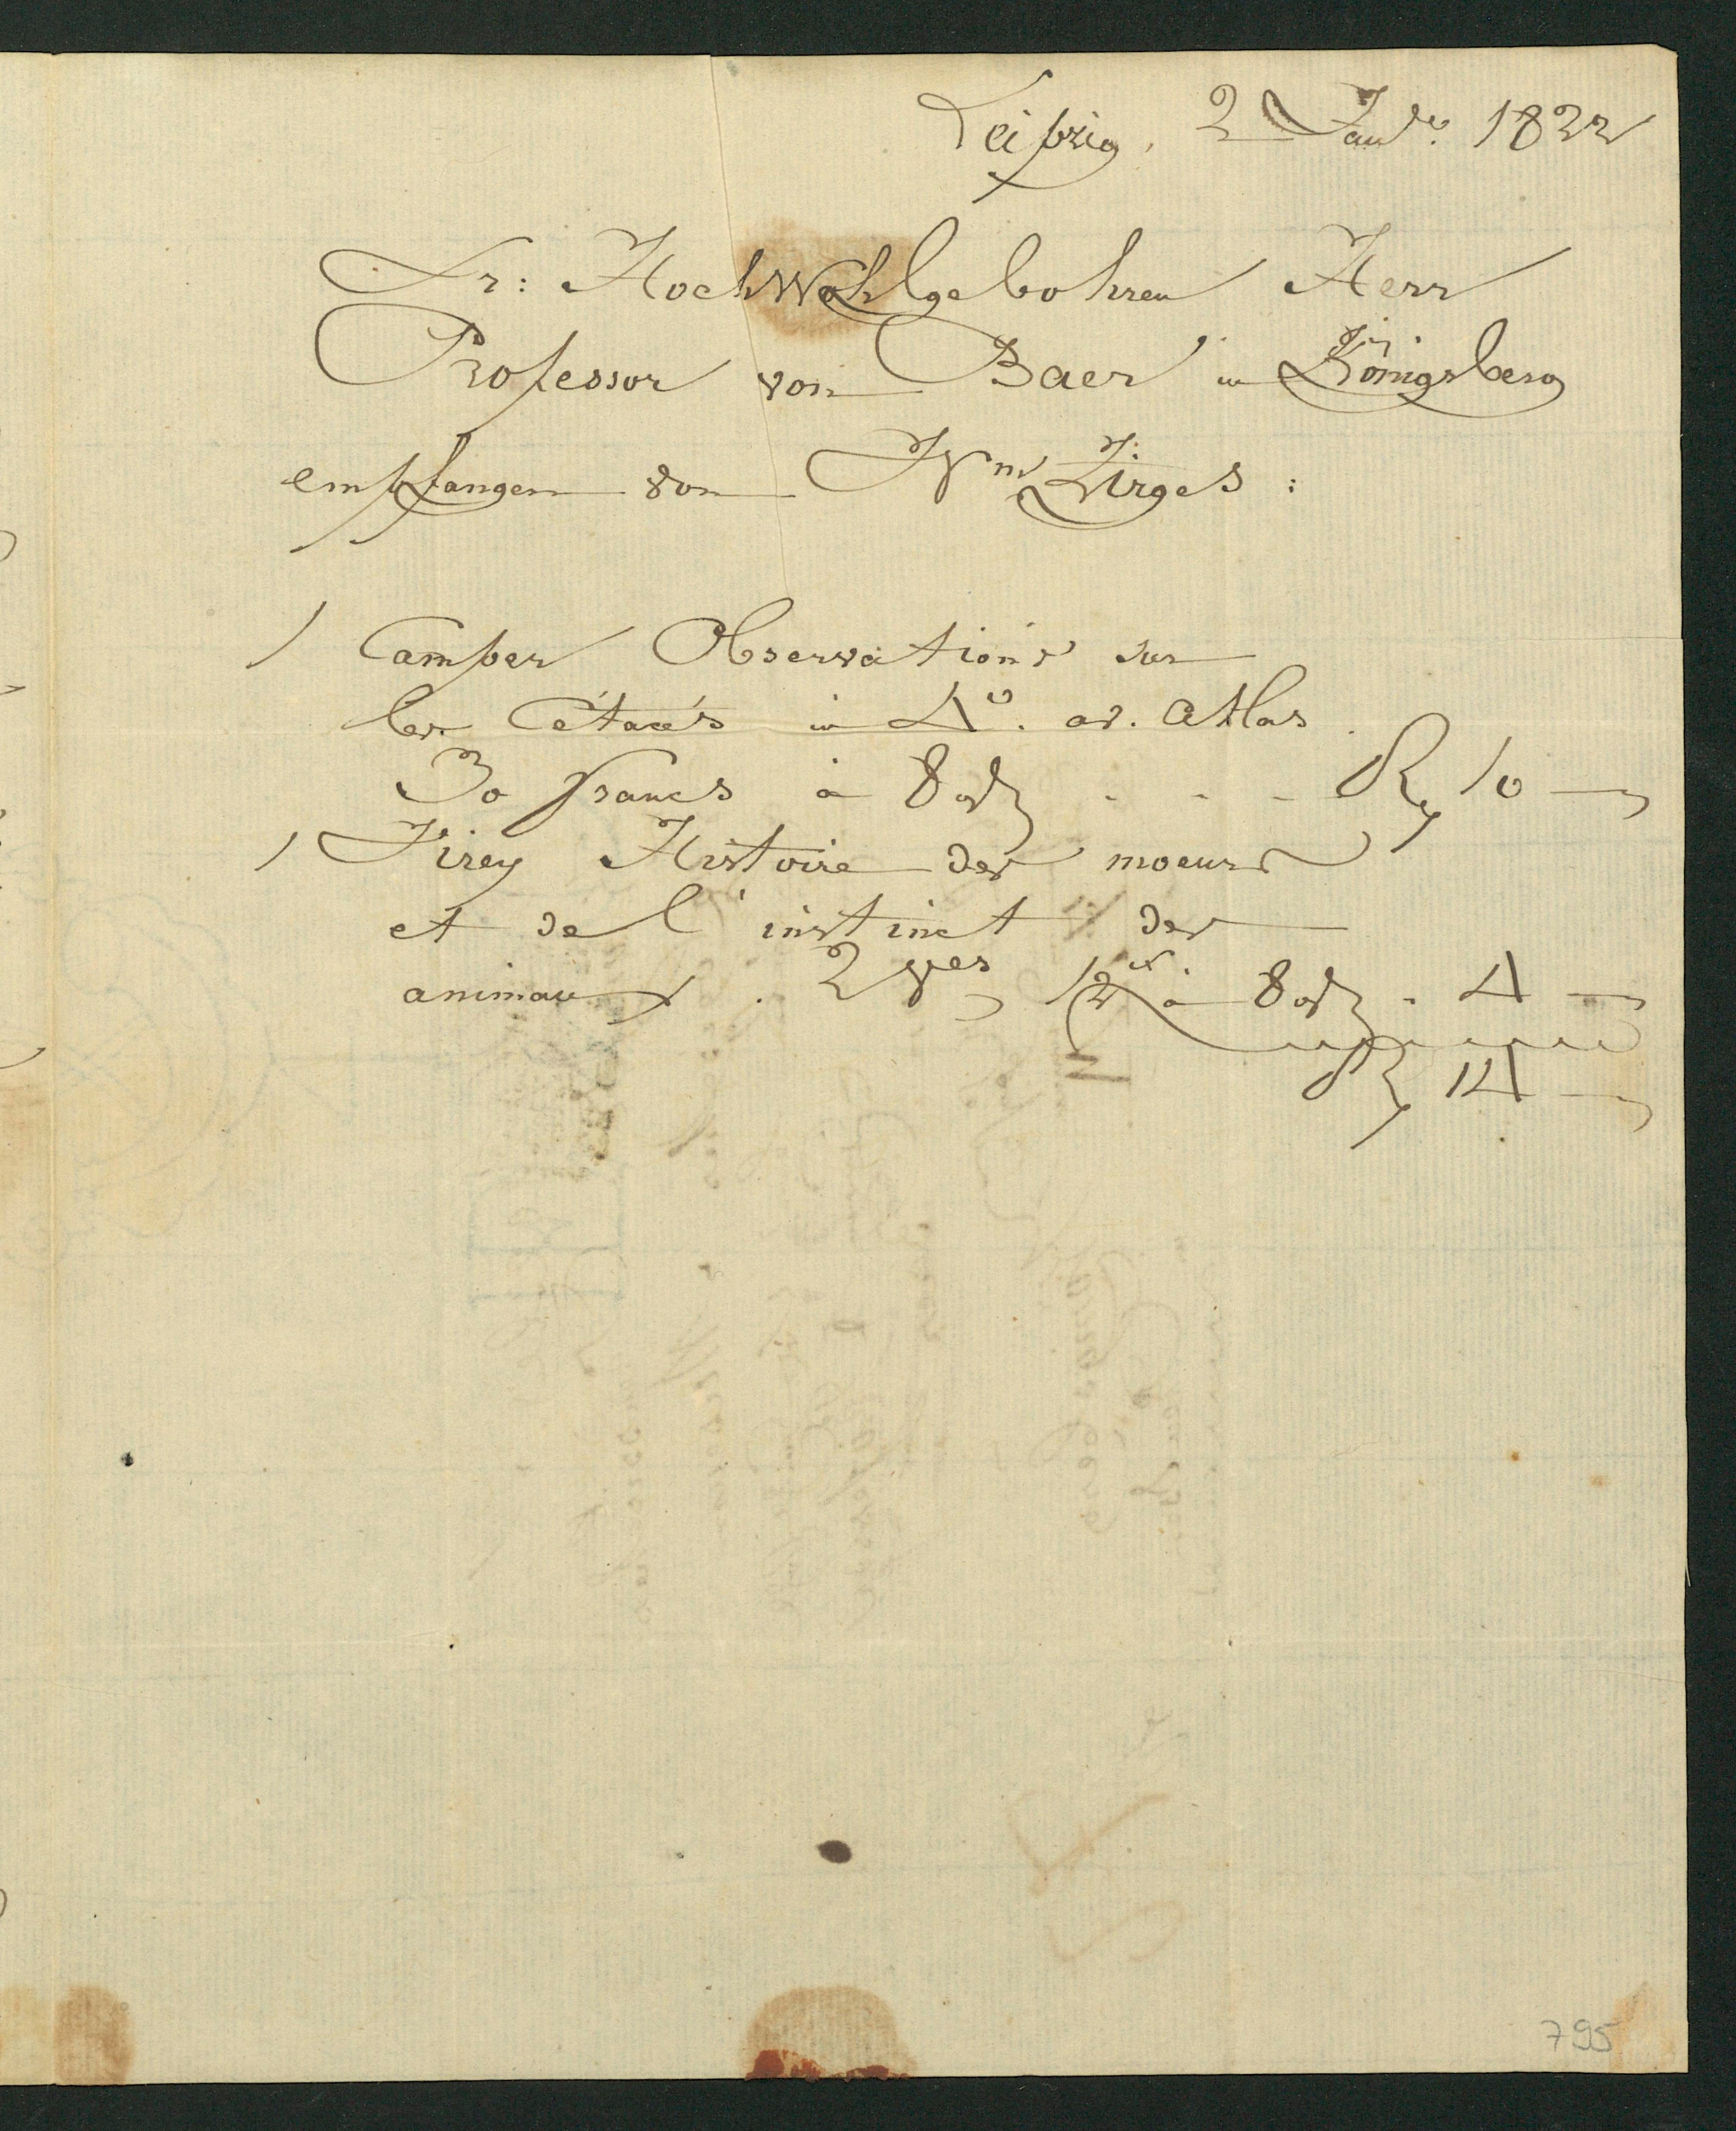 Leipzig, 2 Janr. 1822
Sr: Hochwohlgebohren Herr
Professor von Baer in Königsberg
empfangen von Wm Zirges:
1 Camper Observations sur
les Cétacés in 4o. av. Atlas.
30 francs à 8 gr - - - Rh 10 —
1 Virey Histoire des moeurs
et de l'instinct des
animaux. 2 ves 12 à 8 gr - 4 —
Rh 14 —
795